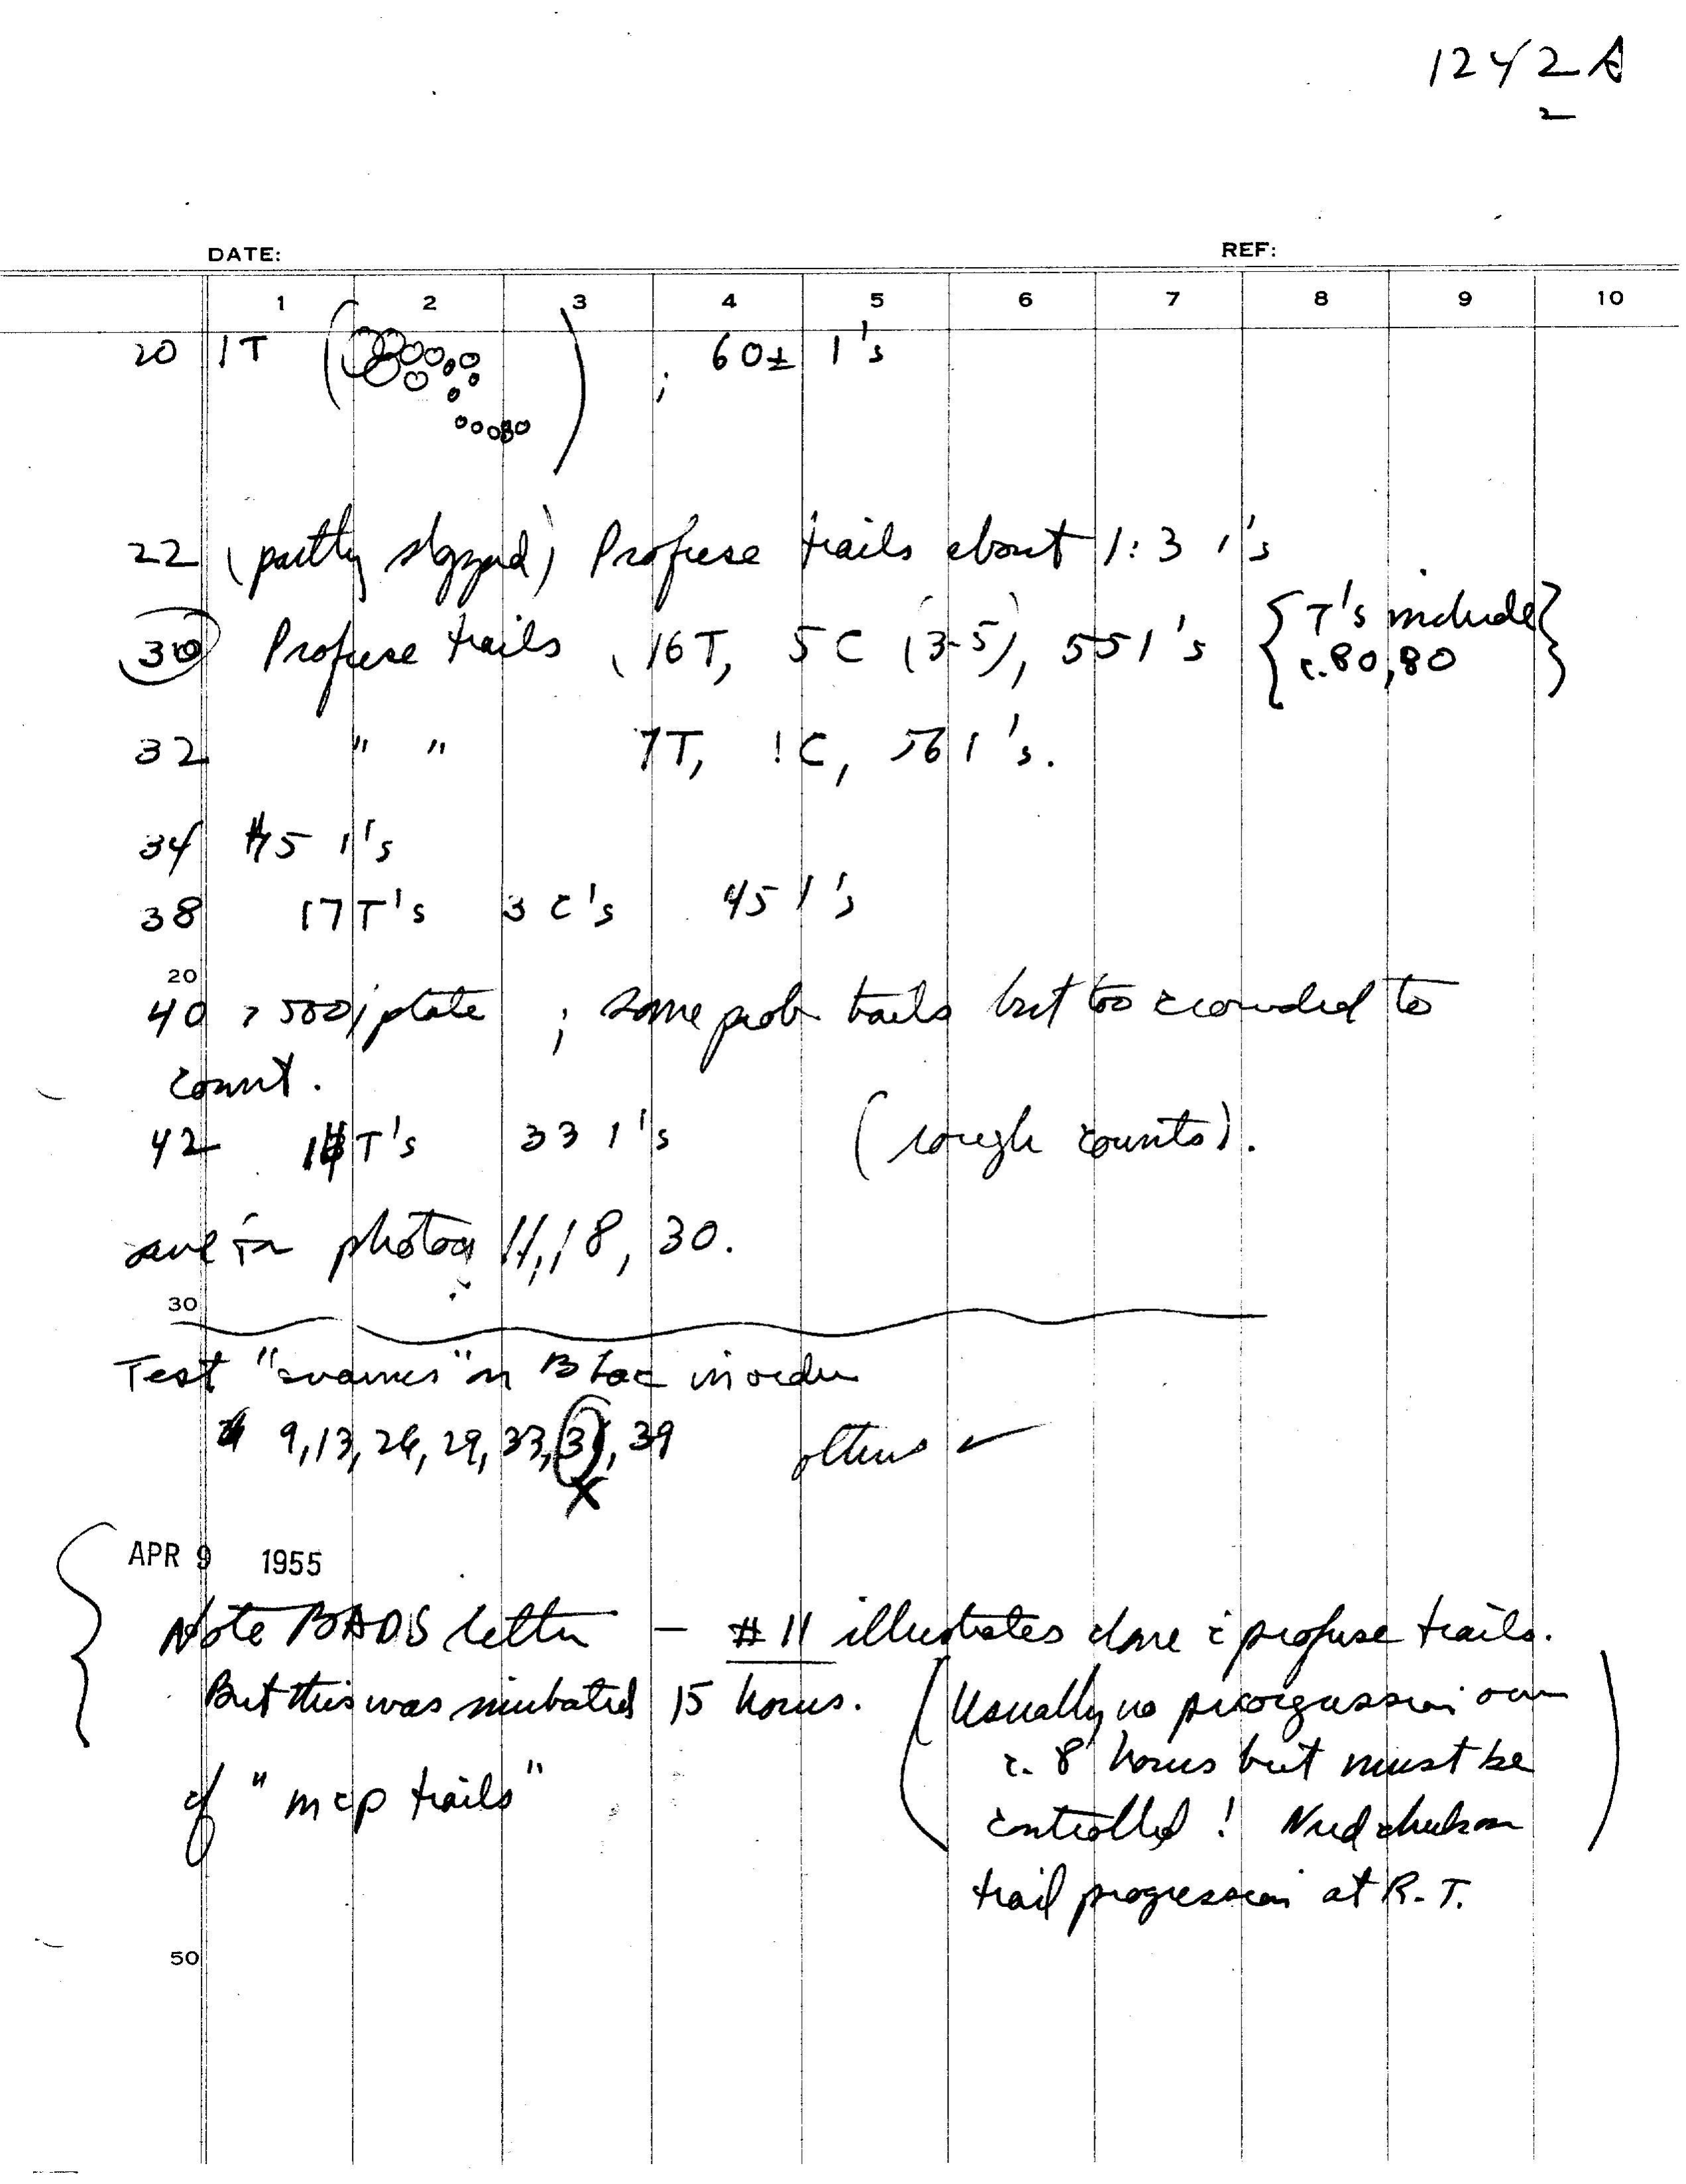 1242A
2
DATE: REF:
1 2 3 4 5 6 7 8 9 10
20 1T ( ) ; 60± 1's
22 (partly) Profuse trails about 1:3 1's
30 Profuse trails, 16T, 5C (3-5), 55 1's {T's include
c. 80, 80}
32 " " 7T, 1C, 56 1's.
34 45 1's
38 17T's 3C's 45 1's
20
40 >500/plate ; some prob trails but too crowded to
count.
42 T's 33 1's (rough counts).
save for photog 11, 18, 30.
30
Test "swarmers" on B lac in order
9, 13, 26, 29, 33, 39 others ✓
X
APR 9 1955
Note BADS letter — #11 illustrates clone c̄ profuse trails.
But this was incubated 15 hours. (Usually no progression over
c. 8 hours but must be
controlled! Need check on
trail progression at R.T.)
cf "mcp trails"
50